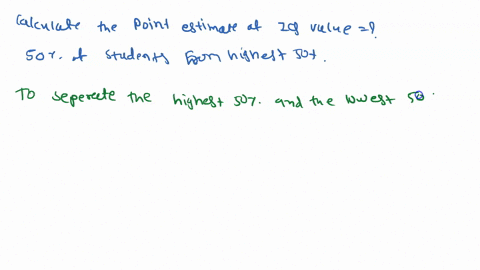 Calculate the Point estimate of IQ value =?
50%. of students from highest 50%.
To seperate the highest 50%. and the lowest 50